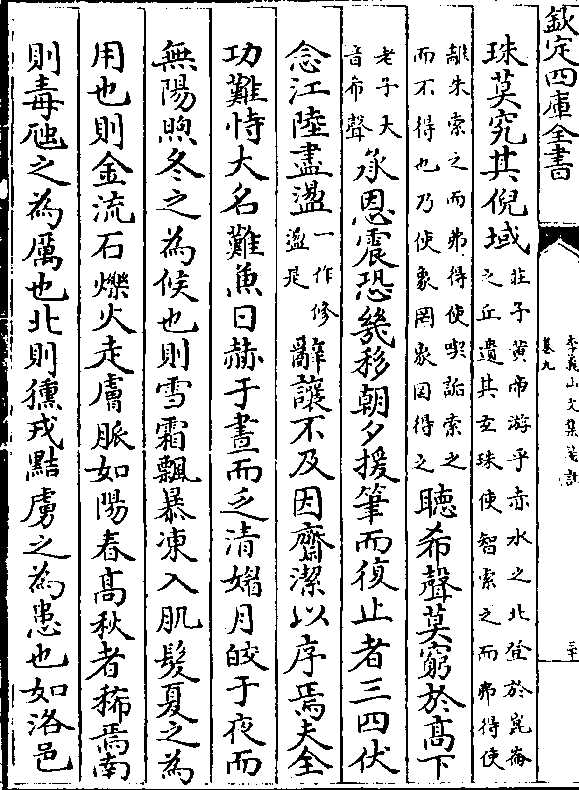 欽定四庫全書
李義山文集箋註
卷九
珠莫究其倪域莊子黄帝游乎赤水之北登於崑崙
之丘遺其𤣥珠使智索之而弗得使
離朱索之而弗得使喫詬索之
而不得也乃使象罔象罔得之聽希聲莫窮於髙下
老子大
音希聲承恩震恐幾移朝夕援筆而復止者三四伏
念江陸盡一作修
是辭讓不及因齋潔以序焉夫全
功難恃大名難兼日赫于晝而乏清媚月皎于夜而
無陽煦冬之為候也則雪霜飄暴凍入肌髮夏之為
用也則金流石爍火走膚脈如陽春髙秋者稀焉南
則毒虺之為厲也北則獯戎黠虜之為患也如洛邑